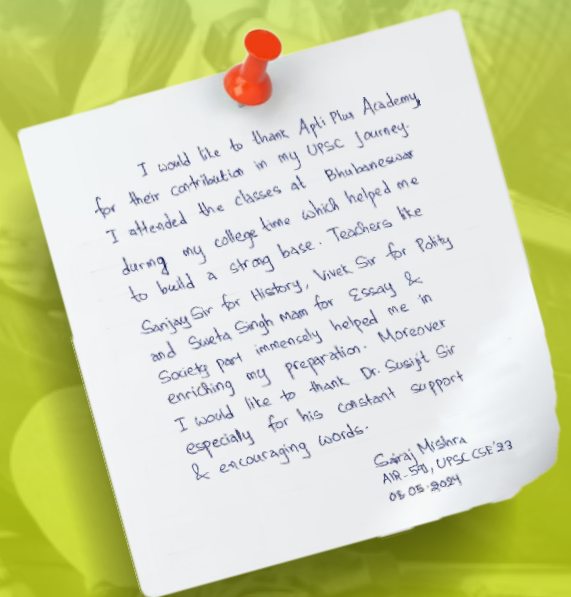 I would like to thank Apti Plus Academy,
for their contribution in my UPSC Journey.
I attended the classes at Bhubaneswar
during my college time which helped me
to build a strong base. Teachers like
Sanjay Sir for History, Vivek Sir for Polity
and Sweta Singh Mam for Essay &
Society part immensely helped me in
enriching my preparation. Moreover
I would like to thank Dr. Susijit Sir
especially for his constant support
& encouraging words.
Mishra
UPSC CSE'23
05.2024